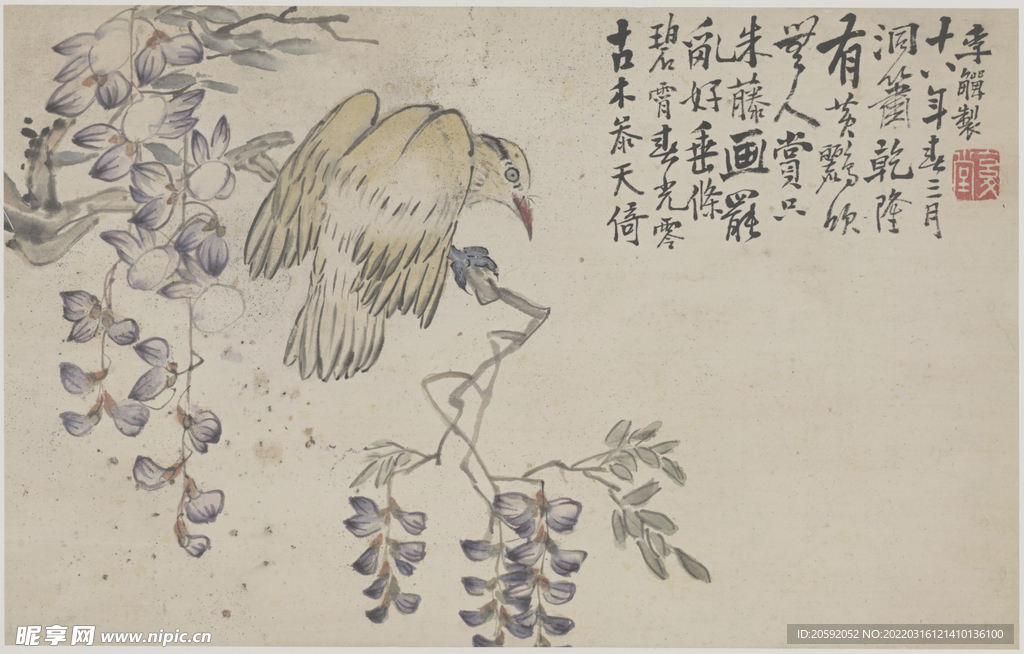 古木參天倚
碧霄春光零
亂好垂條
朱藤画罷
無人賞只
有黃鸝頌
洞簫乾隆
十八年春三月
李觶製
复堂
昵享网 www.nipic.cn
ID:20592052 NO:20220316121410136100